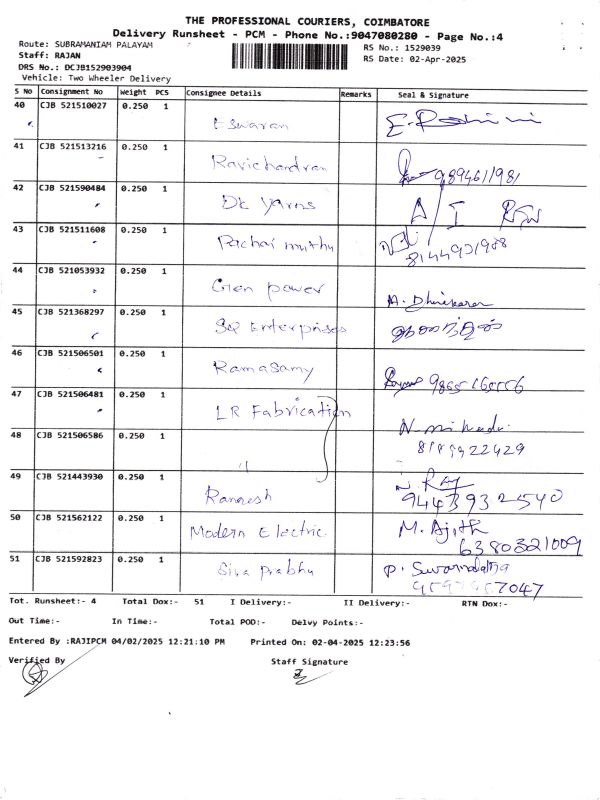 THE PROFESSIONAL COURIERS, COIMBATORE
Delivery Runsheet - PCM - Phone No.:9047080280 - Page No.:4
Route: SUBRAMANIAM PALAYAM
RS No.: 1529039
Staff: RAJAN
RS Date: 02-Apr-2025
DRS No.: DCJB152903904
Vehicle: Two Wheeler Delivery
S No Consignment No Weight PCS Consignee Details Remarks Seal & Signature
40 CJB 521510027 0.250 1 Eswaran E. Rohini
41 CJB 521513216 0.250 1 Ravichandran 9894611981
42 CJB 521590484 0.250 1 DK Yarns A/I
43 CJB 521511608 0.250 1 Pachai muthu 8144901988
44 CJB 521053932 0.250 1 Gen power A. Dhinakaran
45 CJB 521368297 0.250 1 Enterprises
46 CJB 521506501 0.250 1 Ramasamy
47 CJB 521506481 0.250 1 LR Fabrication
48 CJB 521506586 0.250 1 "
49 CJB 521443930 0.250 1 Ramesh 9443932540
50 CJB 521562122 0.250 1 Modern Electric M. Ajith 6380321009
51 CJB 521592823 0.250 1 Siva Prabhu P. Suvarnalatha
Tot. Runsheet:- 4 Total Dox:- 51 I Delivery:- II Delivery:- RTN Dox:-
Out Time:- In Time:- Total POD:- Delvy Points:-
Entered By :RAJIPCM 04/02/2025 12:21:10 PM Printed On: 02-04-2025 12:23:56
Verified By Staff Signature